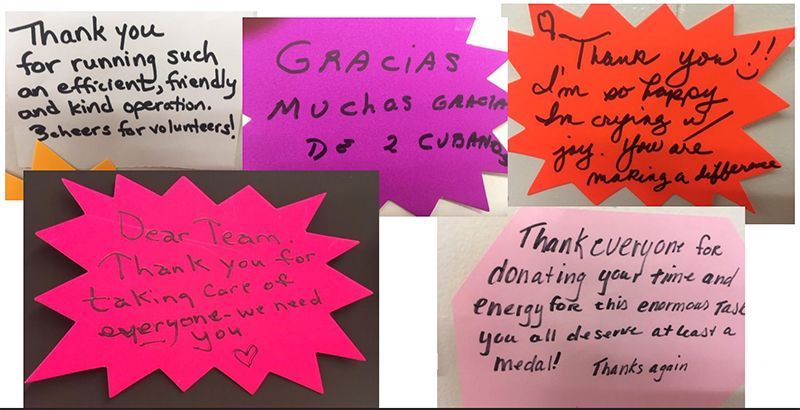 Thank you
for running such
an efficient, friendly
and kind operation.
3 cheers for volunteers!
GRACiAS
MUCHAS GRACIA
DE 2 CUBANOS
Thank you!!
I'm so happy
Im crying w/
joy. You are
making a difference
Dear Team.
Thank you for
taking care of
everyone-we need
you
Thank everyone for
donating your time and
energy fore this enormous Task
you all deserve at least a
medal!
Thanks again